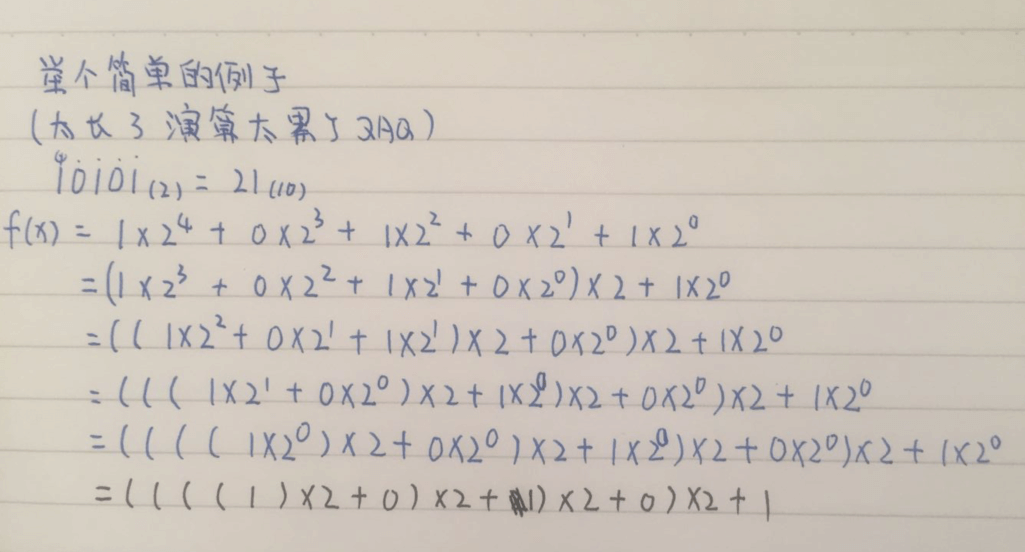 举个简单的例子
(太长了演算太累了QAQ)
4
10101(2) = 21(10)
f(x) = 1×2⁴ + 0×2³ + 1×2² + 0×2¹ + 1×2⁰
=(1×2³ + 0×2² + 1×2¹ + 0×2⁰)×2 + 1×2⁰
=((1×2² + 0×2¹ + 1×2¹)×2 + 0×2⁰)×2 + 1×2⁰
=(((1×2¹ + 0×2⁰)×2 + 1×2⁰)×2 + 0×2⁰)×2 + 1×2⁰
=((((1×2⁰)×2 + 0×2⁰)×2 + 1×2⁰)×2 + 0×2⁰)×2 + 1×2⁰
=((((1)×2+0)×2+1)×2+0)×2+1